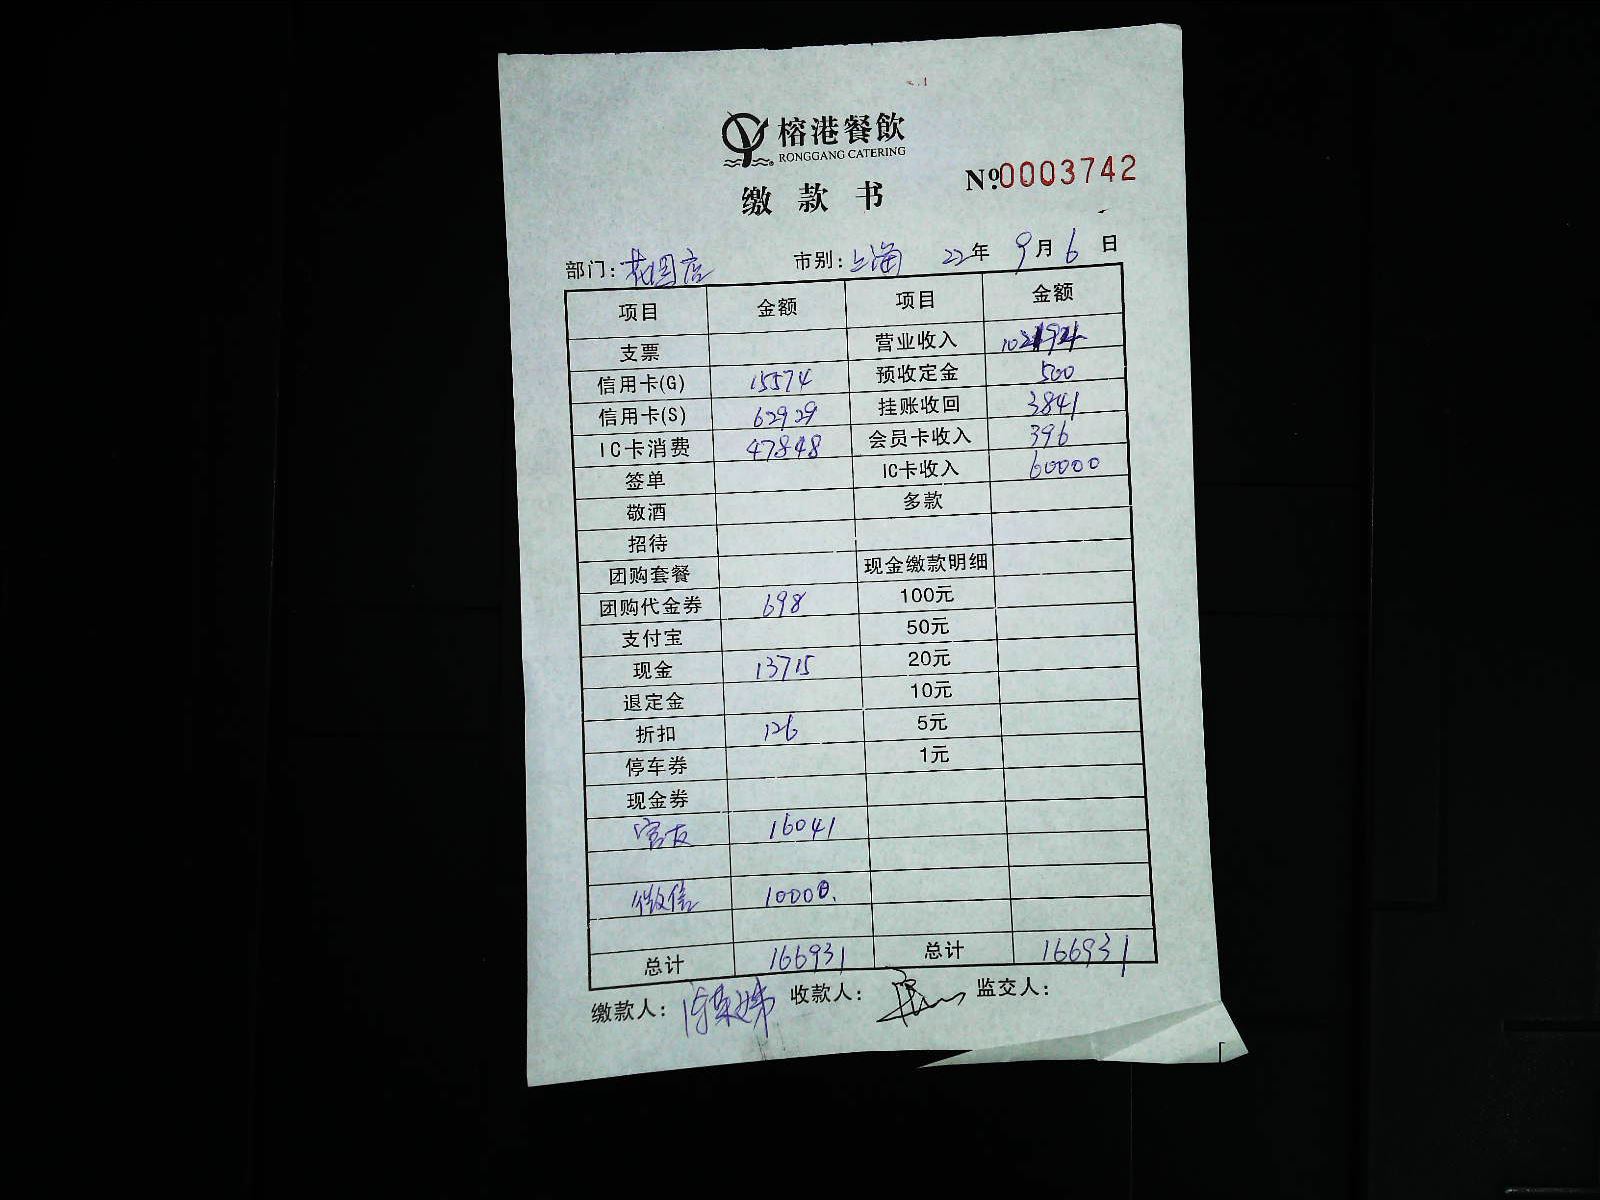 榕港餐飲
RONGGANG CATERING
缴款书
Nº.0003742
部门: 花园店 市别: 上海 22年 9月6日
项目 金额 项目 金额
支票 营业收入 102194
信用卡(G) 15574 预收定金 500
信用卡(S) 62929 挂账收回 3841
IC卡消费 47848 会员卡收入 396
签单 IC卡收入 60000
敬酒 多款
招待
团购套餐 现金缴款明细
团购代金券 698 100元
支付宝 50元
现金 13715 20元
退定金 10元
折扣 126 5元
停车券 1元
现金券
16041
微信 10000.
总计 166931 总计 166931
缴款人: 收款人: 监交人: